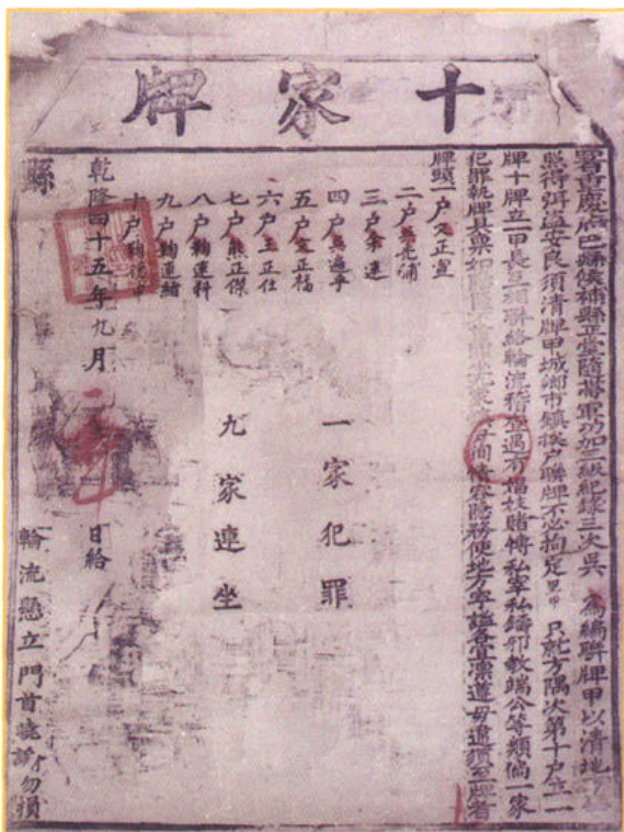 十家牌
署重慶府巴縣候補縣正堂隨帶軍功加三級紀錄三次吳 為編聯牌甲以清地
照得弭盜安良須清牌甲城鄉市鎮挨戶聯牌不必拘定里甲 只就方隅次第十戶立一
牌十牌立一甲長互相聯絡輪流稽查遇有娼妓賭博私宰私鑄邪教端公等類倘一家
犯罪執牌具稟如 徇情容隱務使地方寧謐各宜凜遵毋違須至牌者
牌頭一戶文正宣
二戶 先浦
三戶李連
四戶 過亨
五戶文正福
六戶王正仕
七戶熊正傑
八戶鞠運科
九戶鞠運緒
十戶鞠
一家犯罪
九家連坐
乾隆四十五年九月 日給
縣
輪流懸立門首 勿損